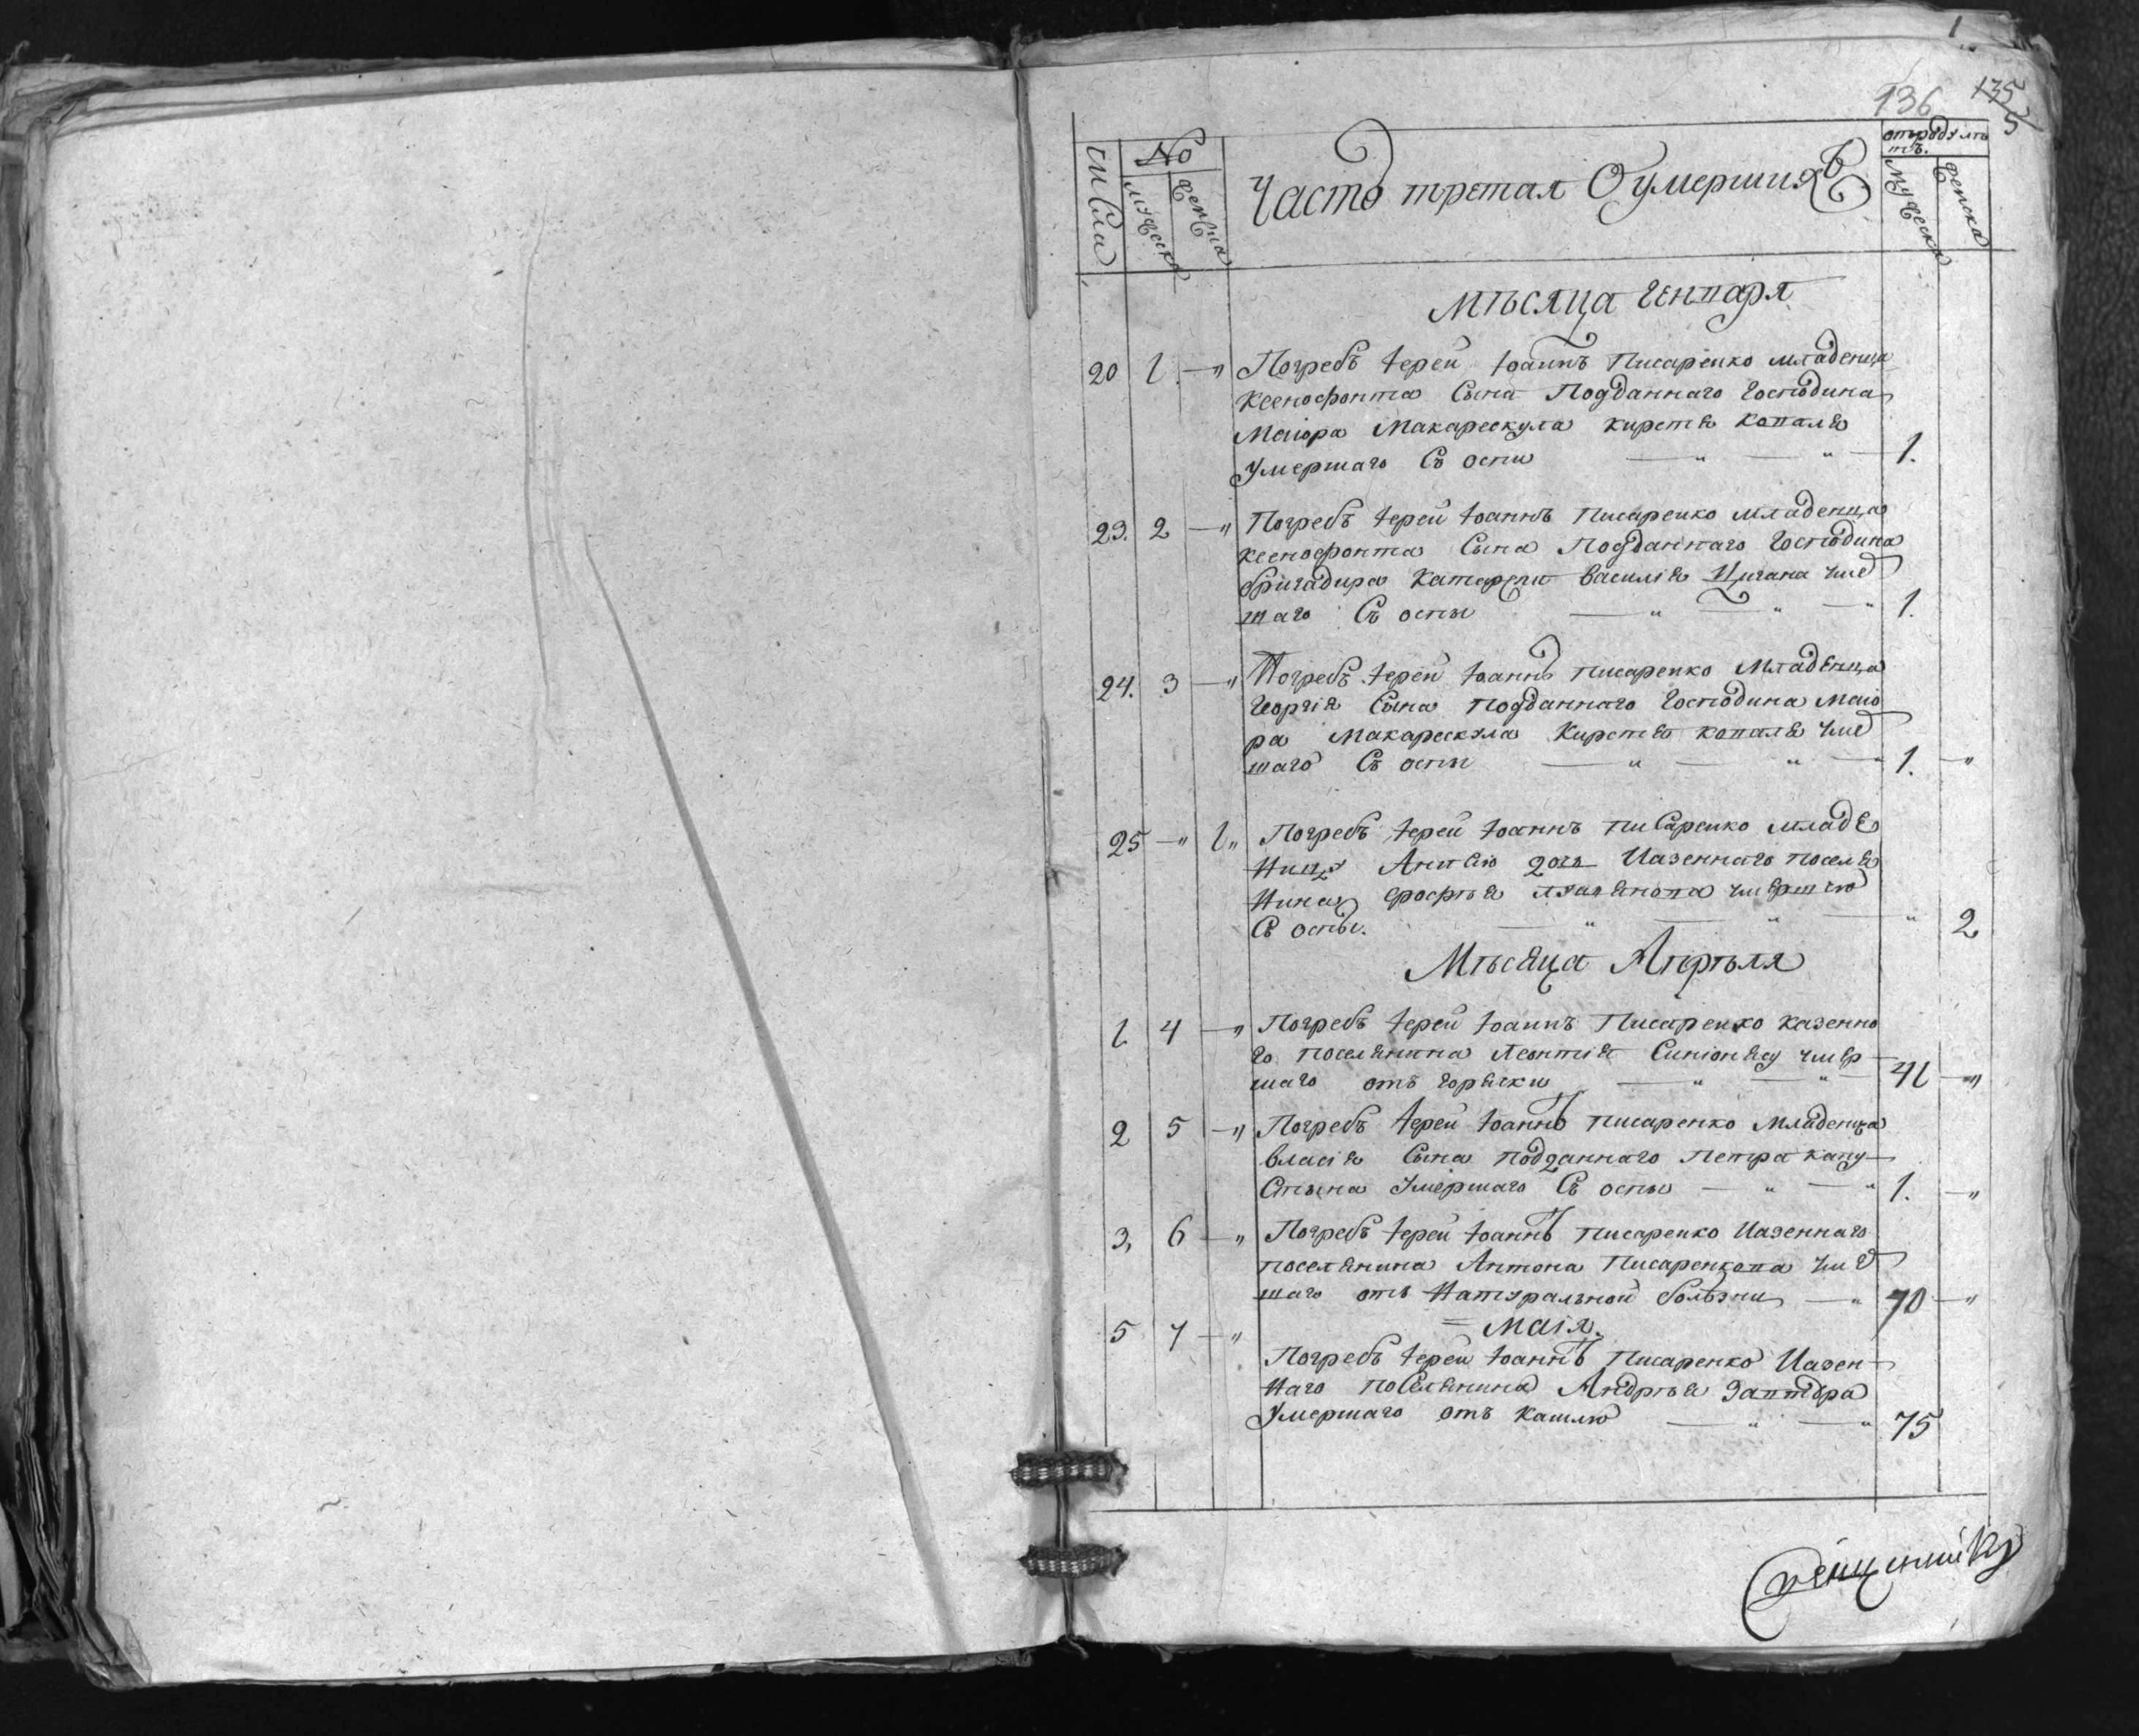 1
136 135
5
числа
No
мужеска
женска
Часть третая О умершихъ
отродулѣ
тъ.
мужеска
женска
Мѣсяца Генваря
20 1. — " Погребъ Іерей Іоаннъ Писаренко младенца
Ксенофонта Сына Подданнаго Господина
Маіора Макарескула Кирстѣя Коваля
Умершаго Съ оспи — " — " — 1.
23. 2 — " Погребъ Іерей Іоаннъ Писаренко младенца
Ксенофонта Сына Подданнаго Господина
бригадира Катаржи Василія Цигана уме
шаго Съ оспы — " — " — " 1.
24. 3 — " Погребъ Іерей Іоаннъ Писаренко Младенца
Георгія Сына подданнаго Господина Маіо
ра Макарескула Кирстѣя коваля уме
шаго Съ оспы — " — " — " 1. — "
25 — " 1 " Погребъ Іерей Іоаннъ Писаренко младе
ницу дочь Казеннаго поселя
нина умершую
Съ оспы. — " — " — " 2
Мѣсяца Апрѣля
1 4 — " Погребъ Іерей Іоаннъ Писаренко казенно
го поселянина Леонтія умер
шаго отъ горячки — " — " — 41 — "
2 5 — " Погребъ Іерей Іоаннъ Писаренко Младенца
Власія Сына подданнаго Петра капу
стына Умершаго Съ оспы — " — " 1. — "
3, 6 — " Погребъ Іерей Іоаннъ Писаренко Казеннаго
поселянина Антона Писаренкова уме
шаго отъ Натуральной болѣзни — " 70 — "
5 7 — " = Маія.
Погребъ Іерей Іоаннъ Писаренко Казен
наго поселянина Андрѣя
Умершаго отъ кашлю — " — " 75